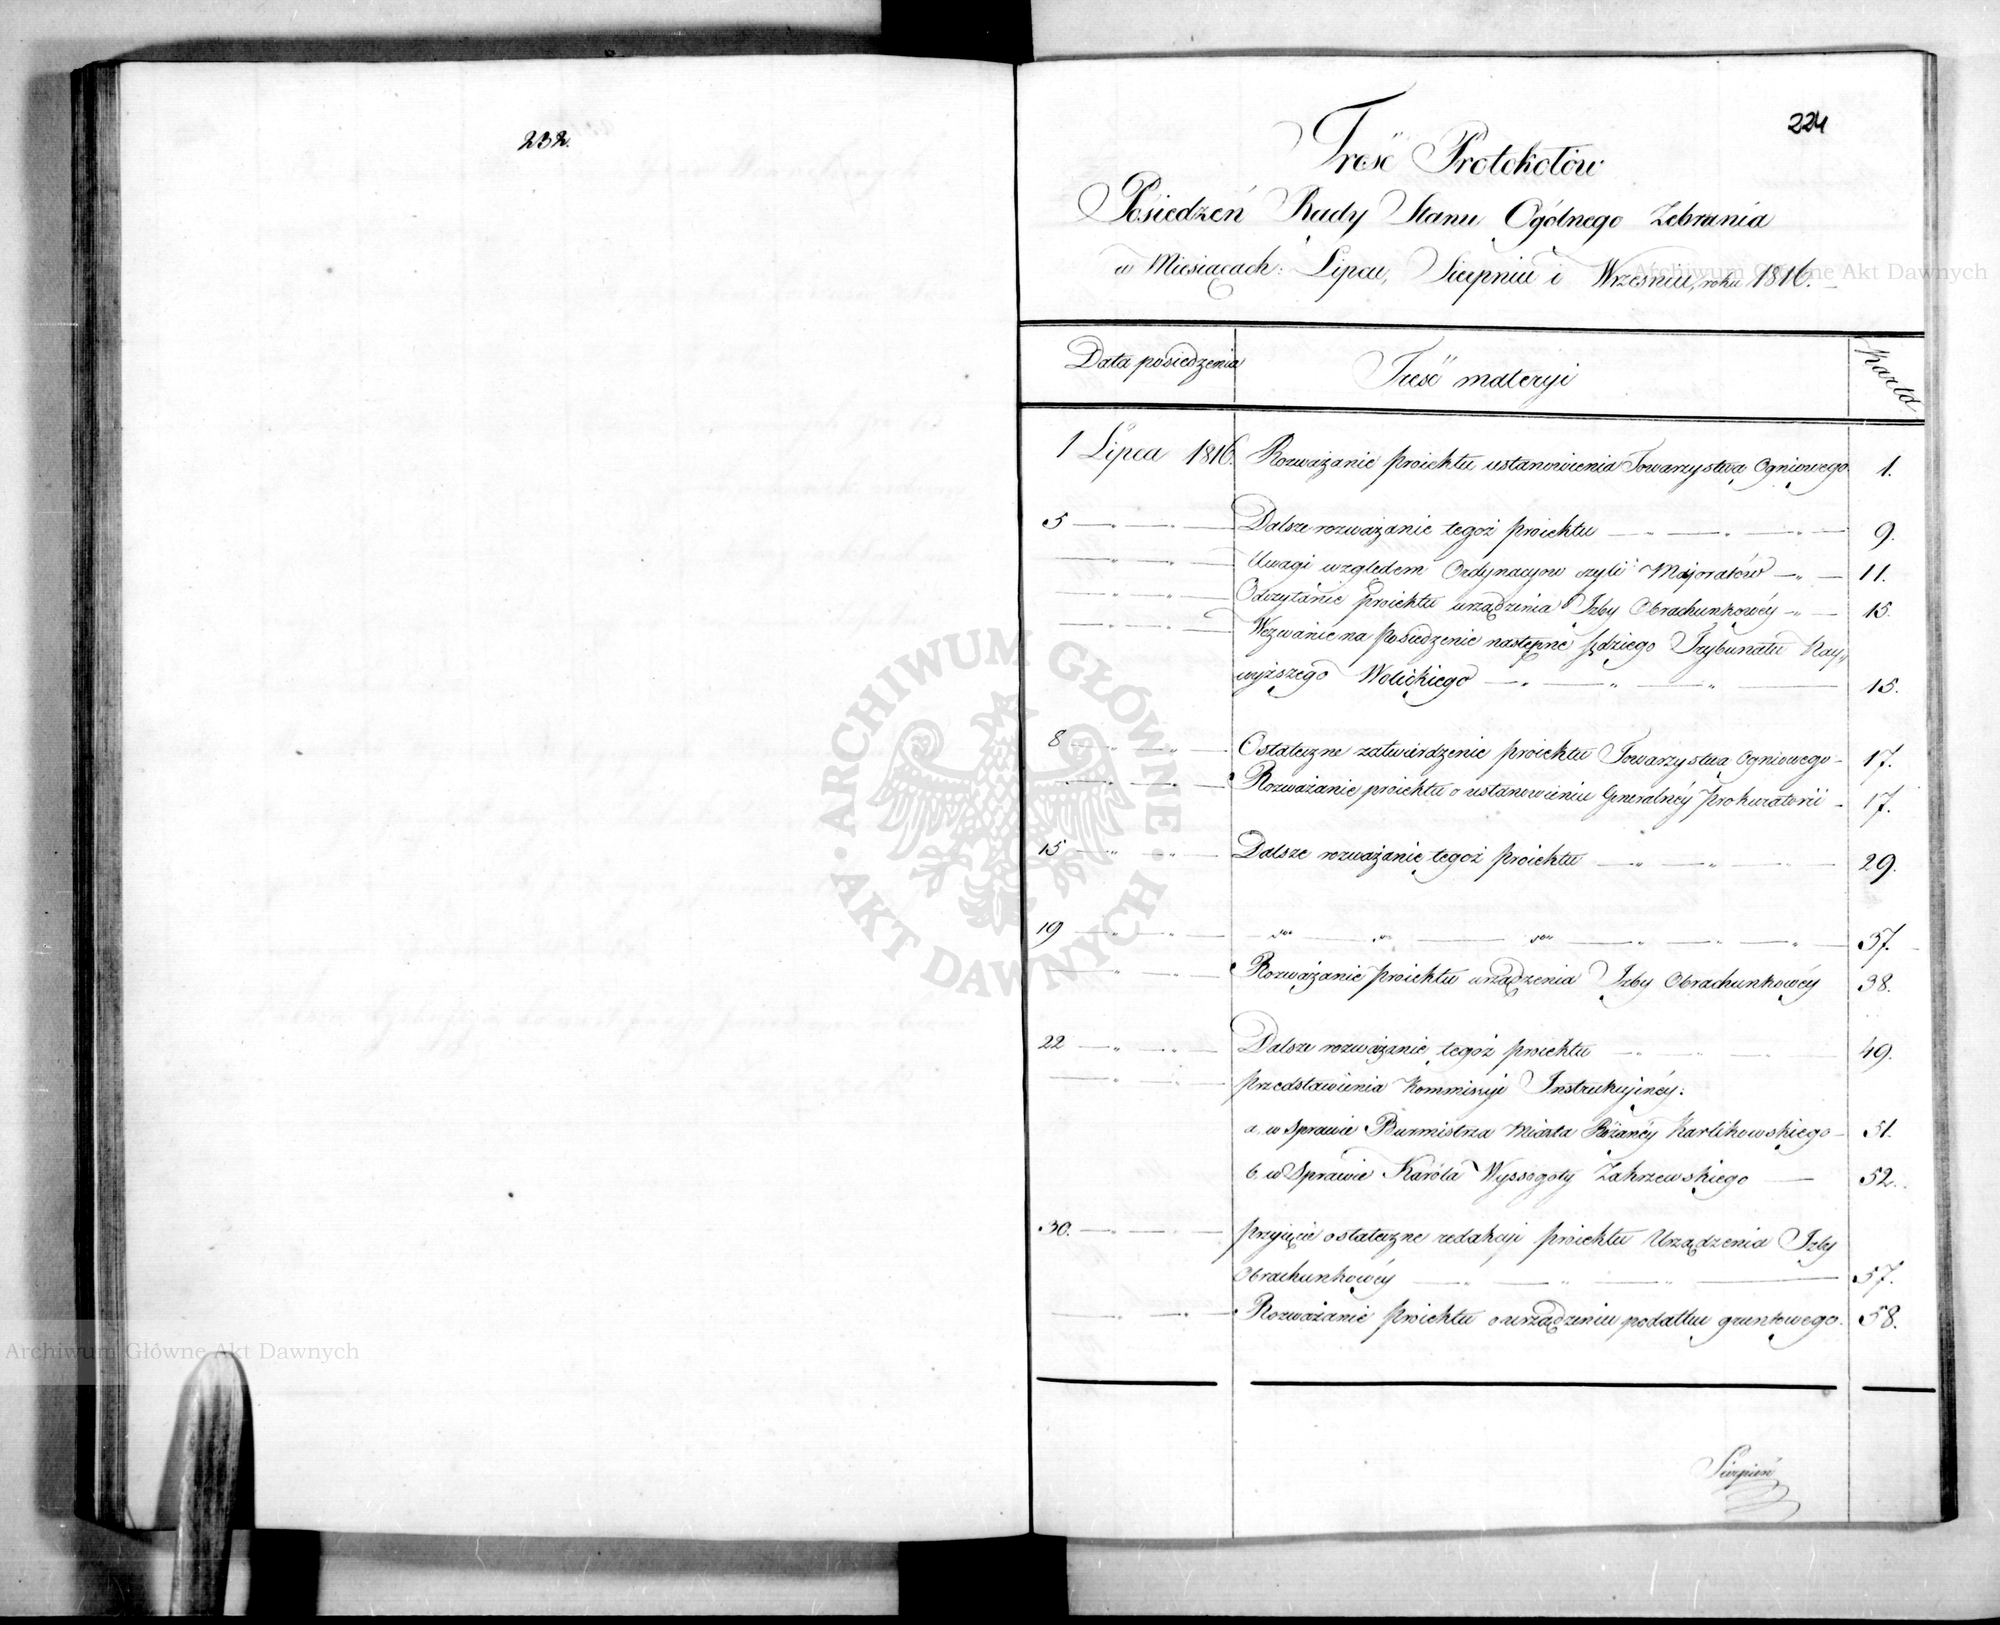 232.
224
Treść Protokołów
Posiedzeń Rady Stanu Ogólnego Zebrania
w Miesiącach: Lipcu, Sierpniu i Wrześniu, roku 1816.
Data posiedzenia Treść materyi Karta
1 Lipca 1816. Rozważanie proiektu ustanowienia Towarzystwa Ogniowego 1.
5 — „ — „ — Dalsze rozważanie tegoż proiektu — „ — „ — 9.
— „ — „ — Uwagi względem Ordynacyow czyli Majoratów — „ — 11.
— „ — „ — Odczytanie proiektu urządzenia Izby Obrachunkowéy — „ — 15.
— „ — „ — Wezwanie na posiedzenie następne Sędziego Trybunału Nay„
wyższego Wolickiego — „ — „ — „ — 15.
8 — „ — „ — Ostateczne zatwierdzenie proiektu Towarzystwa Ogniowego — 17.
— „ — „ — Rozważanie proiektu o ustanowieniu Generalnéy Prokuratorii — 17.
15 — „ — „ — Dalsze rozważanie tegoż proiektu — „ — „ — 29.
19 — „ — „ — „ — „ — „ — „ — „ — „ — 37.
— „ — „ — Rozważanie proiektu urządzenia Izby Obrachunkowéy 38.
22 — „ — „ — Dalsze rozważanie tegoż proiektu — „ — „ — 49.
— „ — „ — Przedstawienia Kommissyi Instrukcyinéy:
a, w Sprawie Burmistrza Miasta Karlikowskiego — 51.
b, w Sprawie Karóla Wyssogoty Zakrzewskiego — 52.
30. — „ — „ — Przyjęcie ostateczne redakcyi proiektu Urządzenia Izby
Obrachunkowéy — „ — „ — „ — 57.
— „ — „ — Rozważanie proiektu o urządzeniu podatku gruntowego. 58.
Sierpień
ARCHIWUM GŁÓWNE AKT DAWNYCH
Archiwum Główne Akt Dawnych
Archiwum Główne Akt Dawnych